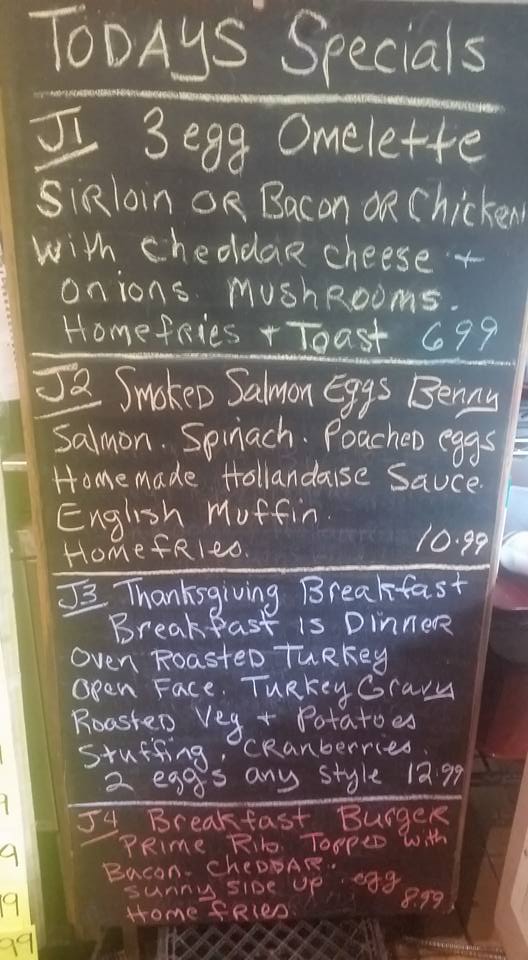 TODAYS Specials
J1 3 egg Omelette
Sirloin OR Bacon OR Chicken
with cheddar cheese +
onions. Mushrooms.
Homefries + Toast 6 99
J2 Smoked Salmon Eggs Benny
Salmon. Spinach. Poached eggs
Homemade Hollandaise Sauce.
English Muffin.
Homefries. 10.99
J3 Thanksgiving Breakfast
Breakfast is Dinner
Oven Roasted Turkey
Open Face. Turkey Gravy
Roasted Veg + Potatoes
Stuffing. Cranberries.
2 eggs any style 12.99
J4 Breakfast Burger
Prime Rib. Topped with
Bacon. Cheddar.
Sunny side up. egg
Home fries 8.99
9
9
99